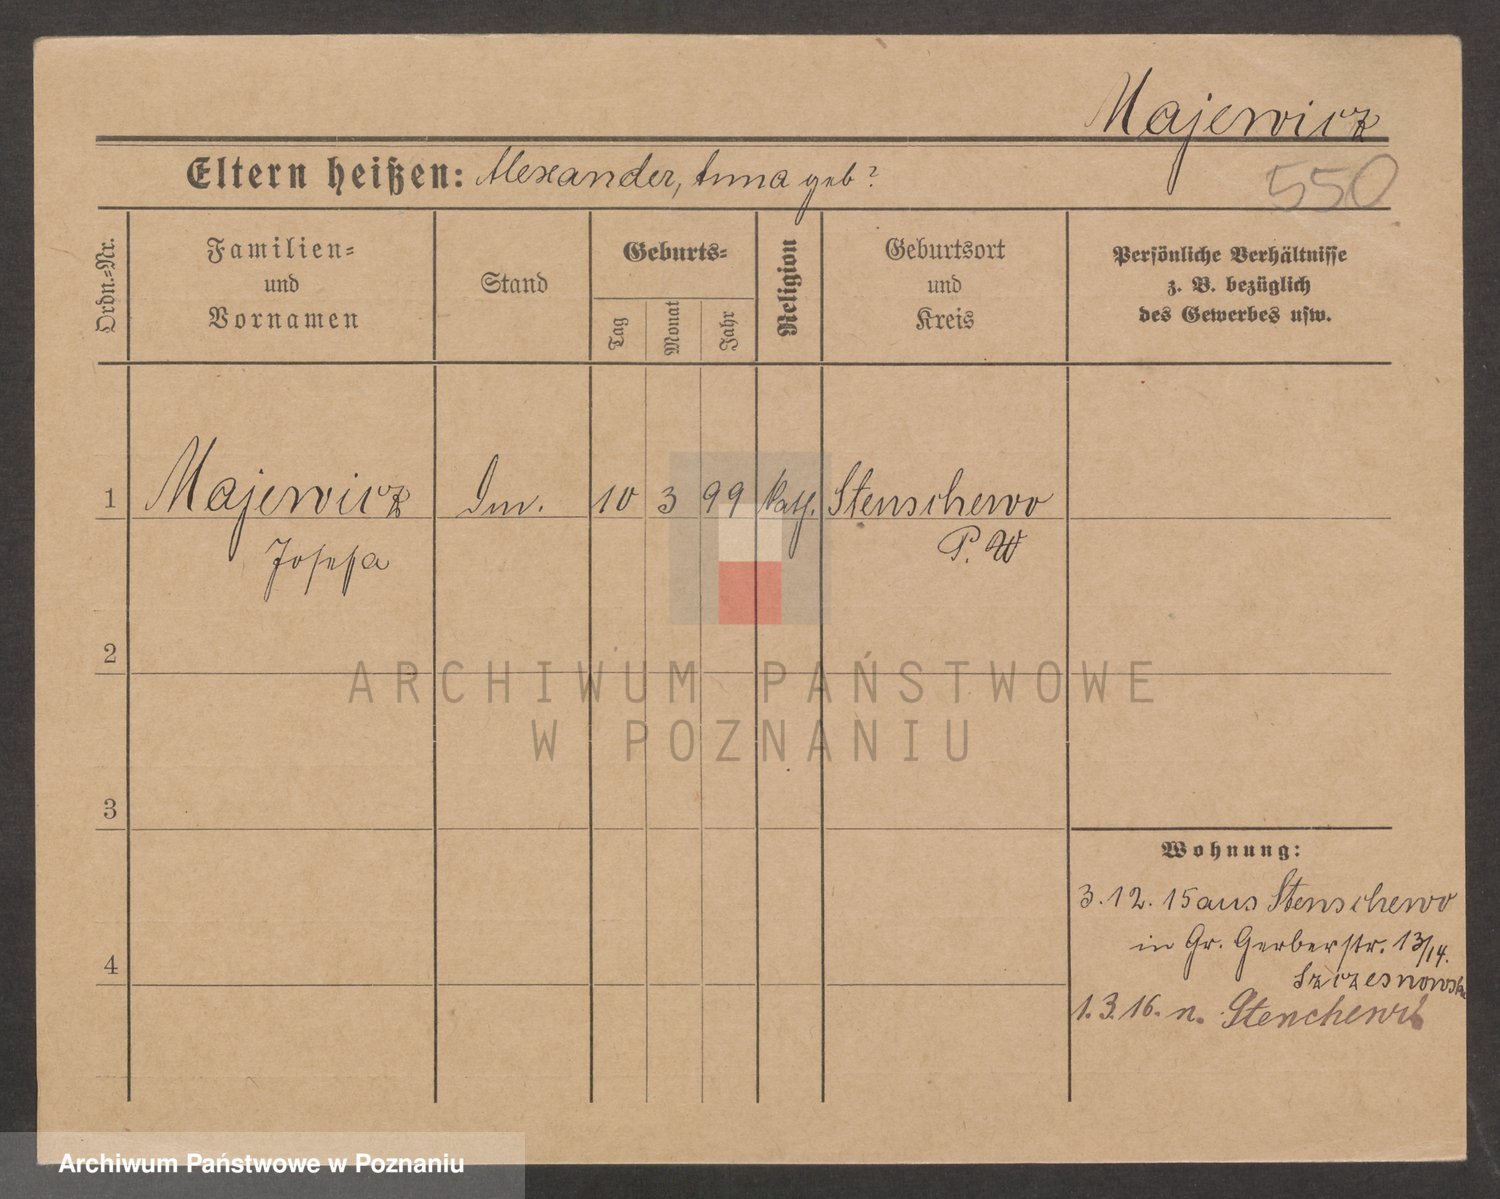 Majewicz
Eltern heißen: Alexander, Anna geb?
550
Ordn.=Nr.
Familien=
und
Vornamen
Stand
Geburts=
Tag
Monat
Jahr
Religion
Geburtsort
und
Kreis
Persönliche Verhältnisse
z. B. bezüglich
des Gewerbes usw.
1 Majewicz 10 3 99 kath. Stenschewo
Josefa P. W
2
ARCHIWUM PAŃSTWOWE
W POZNANIU
3
Wohnung:
3.12.15 aus Stenschewo
in Gr. Gerberstr. 13/14.
4
1.3.16. n.
Archiwum Państwowe w Poznaniu